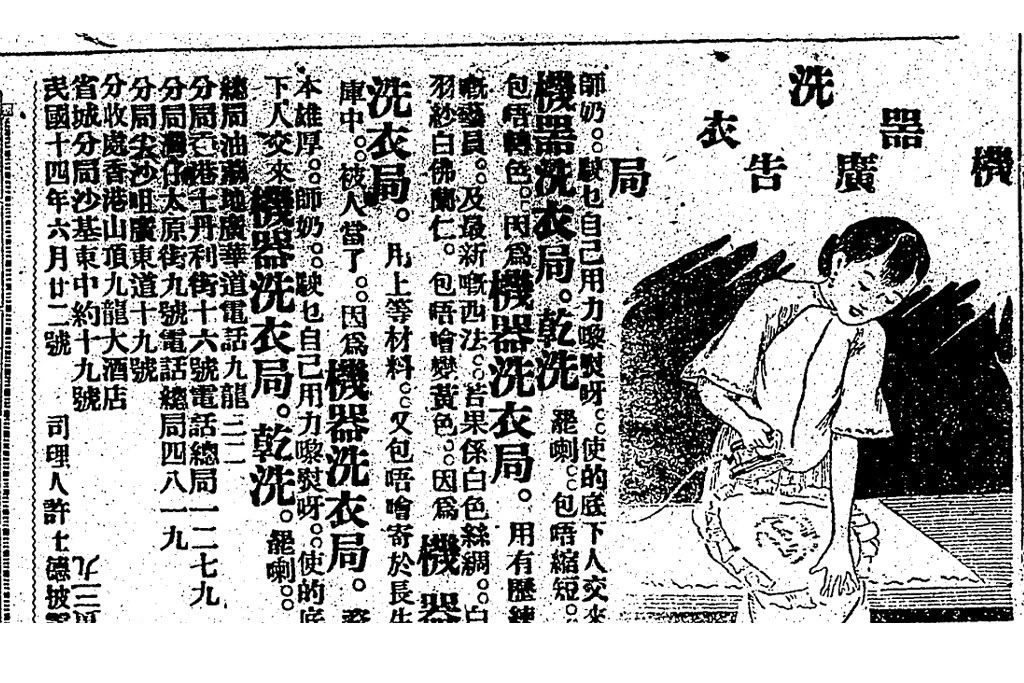 機器洗衣局
廣告
師奶。駛乜自己用力嚟熨呀。使的底下人交來
機器洗衣局。乾洗罷喇。包唔縮短。
包唔轉色。因爲機器洗衣局。用有歷練
嘅藝員。及最新嘅西法。若果係白色絲綢。白
羽紗白佛蘭仁。包唔噲變黃色。因爲機器
洗衣局。用上等材料。又包唔噲寄於長生
庫中。被人當了。因爲機器洗衣局。資
本雄厚。師奶。駛乜自己用力嚟熨呀。使的底
下人交來機器洗衣局。乾洗。罷喇。
總局油蔴地廣華道電話九龍三二
分局香港士丹利街十六號電話總局一二七九
分局灣仔太原街九號電話總局四八一九
分局尖沙咀廣東道十九號
分收處香港山頂九龍大酒店
省城分局沙基東中約十九號
民國十四年六月廿二號 司理人許士德披露